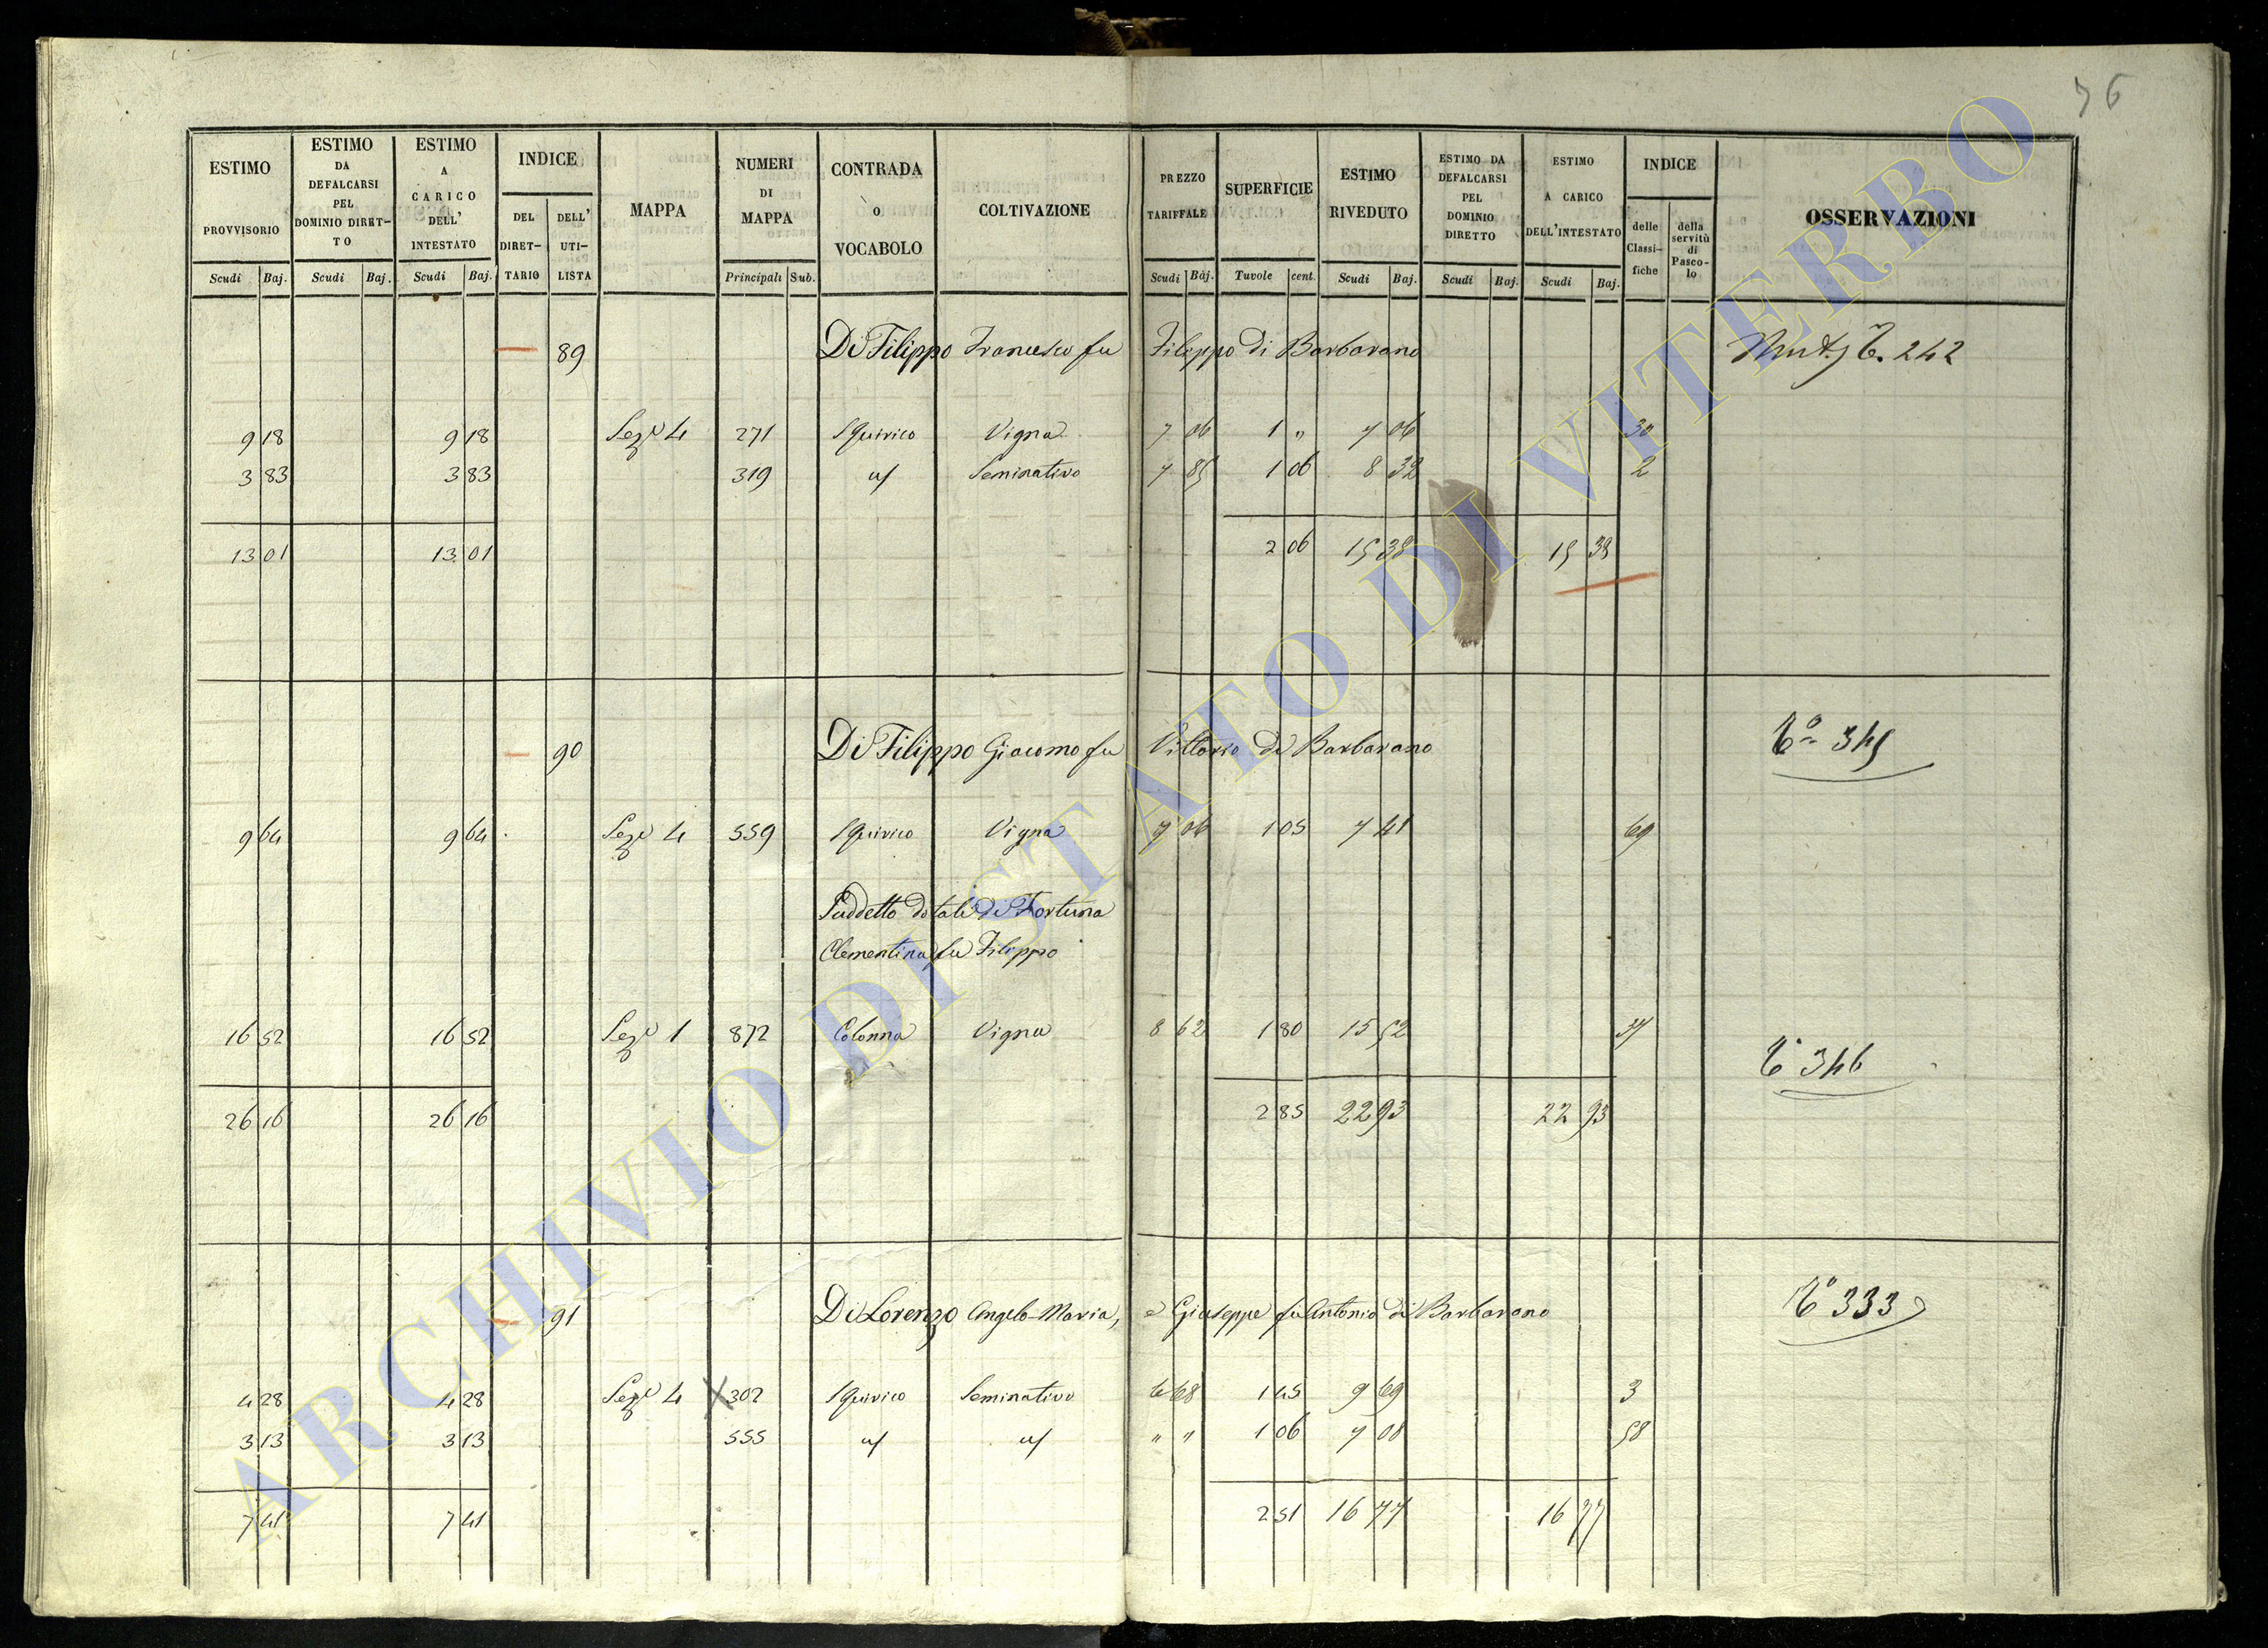 76
ESTIMO PROVVISORIO | ESTIMO DA DEFALCARSI PEL DOMINIO DIRET-TO | ESTIMO A CARICO DELL' INTESTATO | INDICE | MAPPA | NUMERI DI MAPPA | CONTRADA O VOCABOLO | COLTIVAZIONE | PREZZO TARIFFALE | SUPERFICIE | ESTIMO RIVEDUTO | ESTIMO DA DEFALCARSI PEL DOMINIO DIRETTO | ESTIMO A CARICO DELL'INTESTATO | INDICE | OSSERVAZIONI
DEL DIRET-TARIO | DELL' UTI-LISTA | delle Classi-fiche | della servitù di Pasco-lo
Scudi | Baj. | Scudi | Baj. | Scudi | Baj. | Principali | Sub. | Scudi | Baj. | Tavole | cent. | Scudi | Baj. | Scudi | Baj. | Scudi | Baj.
89 Di Filippo Francesco fu Filippo di Barbarano 242
9 18 9 18 Sez. 4 271 S Quirico Vigna 7 06 1 " 7 06 30
3 83 3 83 319 Seminativo 7 85 1 06 8 32 2
13 01 13 01 2 06 15 38 15 38
90 Di Filippo Giacomo fu Vittorio di Barbarano 345
9 64 9 64 Sez. 4 559 S Quirico Vigna 7 06 1 05 7 41 69
Suddetto dotali di Fortuna
Clementina fu Filippo
16 52 16 52 Sez. 1 872 Colonna Vigna 8 62 1 80 15 52 37
346
26 16 26 16 2 85 22 93 22 93
91 Di Lorenzo Angelo-Maria, e Giuseppe fu Antonio di Barbarano 333
4 28 4 28 Sez. 4 X 302 S Quirico Seminativo 6 68 1 45 9 69 3
3 13 3 13 555 " " 1 06 7 08 58
7 41 7 41 2 51 16 77 16 77
ARCHIVIO DI STATO DI VITERBO